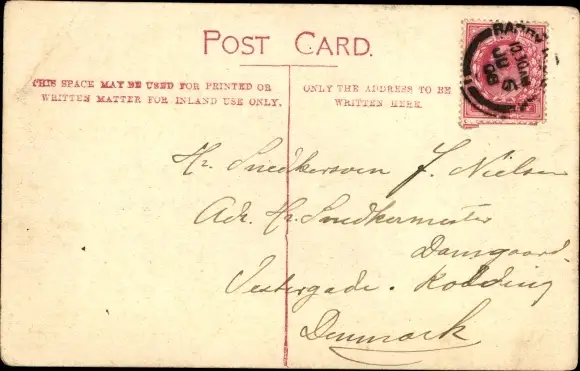 POST CARD.
THIS SPACE MAY BE USED FOR PRINTED OR
WRITTEN MATTER FOR INLAND USE ONLY.
ONLY THE ADDRESS TO BE
WRITTEN HERE.
BARRY
10.10AM
JU 5
Hr. Snedkersven J. Nielsen
Adr. Hr. Snedkermester
Damgaard.
Vestergade. Kolding
Denmark